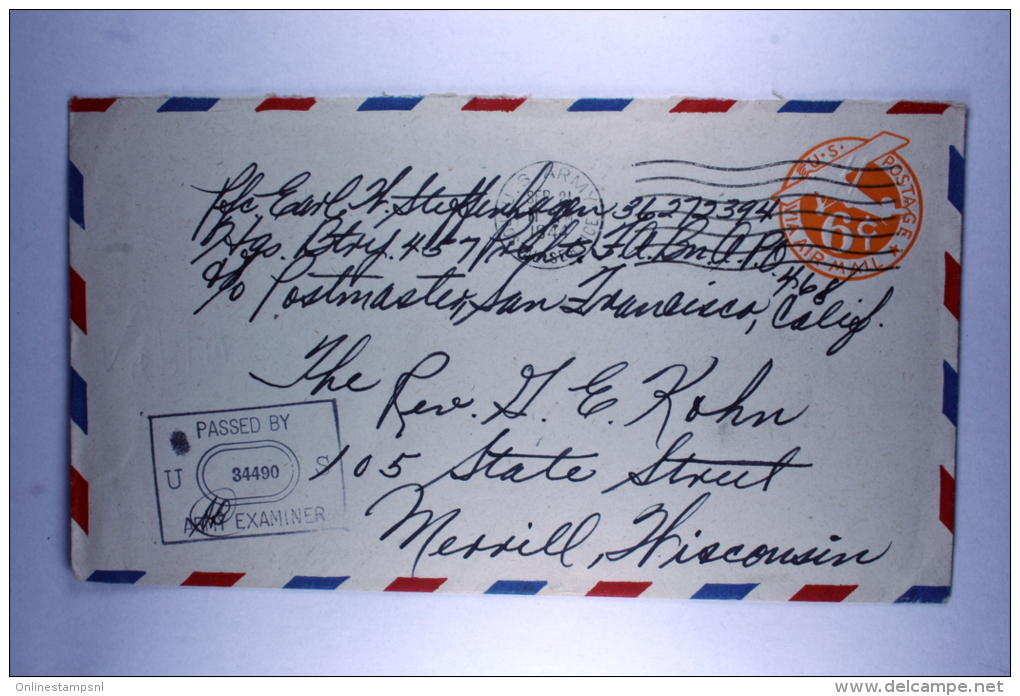 Pfc. Earl W. Steffenhagen 36272394
Hqs. Btry. 457 Prcht. F.A. Bn. A.P.O. 468
c/o Postmaster, San Francisco, Calif.
U.S. ARMY
SEP 21
1944
U.S. POSTAGE
6¢
VIA AIR MAIL
The
Rev. G. E. Kohn
105 State Street
Merrill, Wisconsin
PASSED BY
U 34490 S
ARMY EXAMINER
Onlinestampsnl
www.delcampe.net